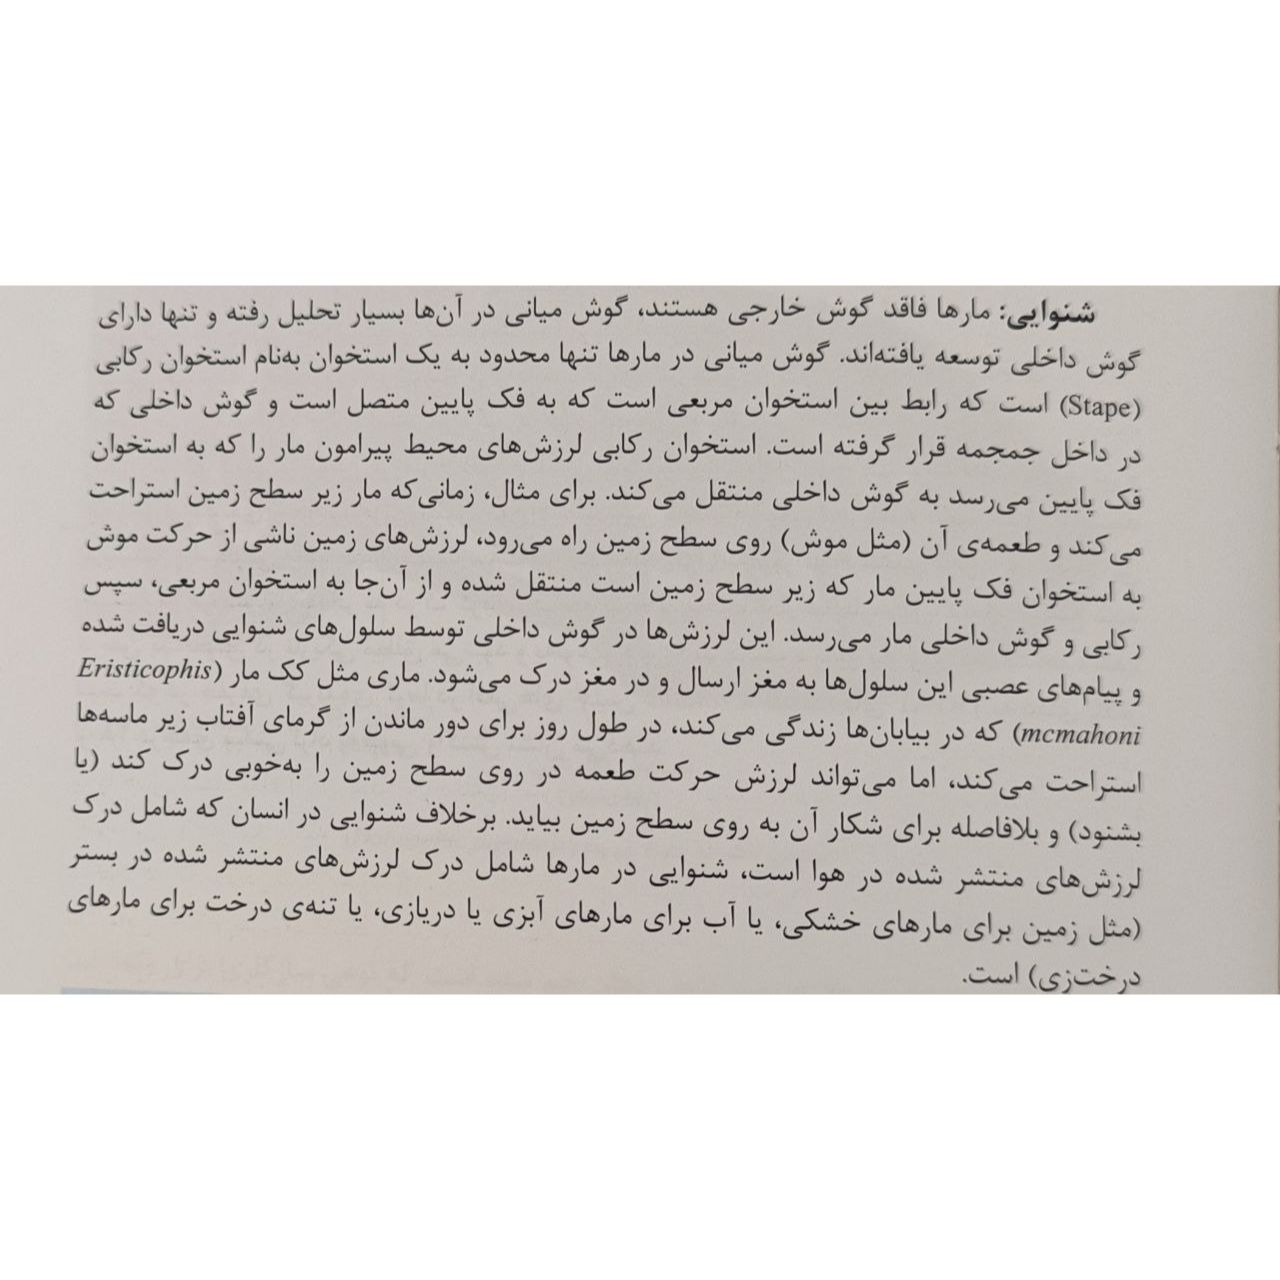 شنوایی: مارها فاقد گوش خارجی هستند، گوش میانی در آن‌ها بسیار تحلیل رفته و تنها دارای
گوش داخلی توسعه یافته‌اند. گوش میانی در مارها تنها محدود به یک استخوان به‌نام استخوان رکابی
(Stape) است که رابط بین استخوان مربعی است که به فک پایین متصل است و گوش داخلی که
در داخل جمجمه قرار گرفته است. استخوان رکابی لرزش‌های محیط پیرامون مار را که به استخوان
فک پایین می‌رسد به گوش داخلی منتقل می‌کند. برای مثال، زمانی‌که مار زیر سطح زمین استراحت
می‌کند و طعمه‌ی آن (مثل موش) روی سطح زمین راه می‌رود، لرزش‌های زمین ناشی از حرکت موش
به استخوان فک پایین مار که زیر سطح زمین است منتقل شده و از آن‌جا به استخوان مربعی، سپس
رکابی و گوش داخلی مار می‌رسد. این لرزش‌ها در گوش داخلی توسط سلول‌های شنوایی دریافت شده
و پیام‌های عصبی این سلول‌ها به مغز ارسال و در مغز درک می‌شود. ماری مثل کک مار (Eristicophis
mcmahoni) که در بیابان‌ها زندگی می‌کند، در طول روز برای دور ماندن از گرمای آفتاب زیر ماسه‌ها
استراحت می‌کند، اما می‌تواند لرزش حرکت طعمه در روی سطح زمین را به‌خوبی درک کند (یا
بشنود) و بلافاصله برای شکار آن به روی سطح زمین بیاید. برخلاف شنوایی در انسان که شامل درک
لرزش‌های منتشر شده در هوا است، شنوایی در مارها شامل درک لرزش‌های منتشر شده در بستر
(مثل زمین برای مارهای خشکی، یا آب برای مارهای آبزی یا دریازی، یا تنه‌ی درخت برای مارهای
درخت‌زی) است.